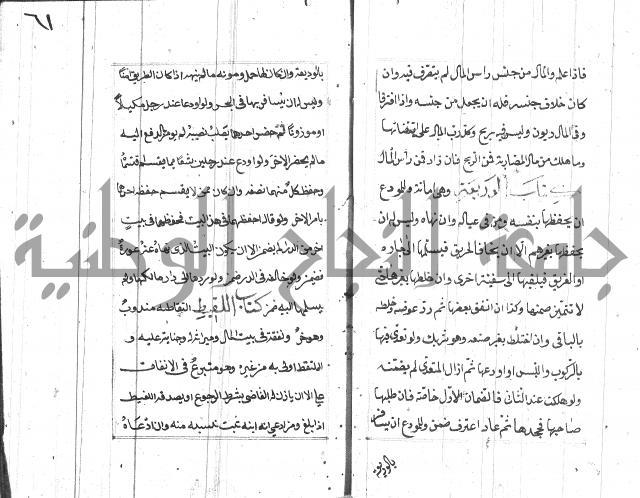 ٦١
فإذا علم والمال من جنس راس المال لم يتصرف فيه وان
كان خلاف جنسه فله ان يجعل من جنسه واذا افترقا
وفى المال ديون وليس فيه ربح وكل رب المال على اقتضائها
وما هلك من مال المضاربة فمن الربح فان زاد فمن راس المال
كتاب الوديعة وهى امانة وللمودع
ان يحفظها بنفسه ومن فى عياله وان نهاه وليس له ان
يحفظها بغيرهم الا ان يخاف الحريق فيسلمها الى جاره
او الغريق فيلقيها الى سفينة اخرى وان خلطها بغيرها حتى
لا تتميز ضمنها وكذا ان انفق بعضها ثم رد عوضه خلطه
بالباقى وان اختلط بغير صنعه وهو شريك ولو تعدى فيها
بالركوب واللبس او اودعها ثم ازال التعدى لم يضمنه
ولو هلكت عند الثانى فالضمان الاول خاصة فان طلبها
صاحبها فجحدها ثم عاد اعترف ضمن وللمودع ان يسافر
بالوديعة
بالوديعة وان كان لها حمل ومونة مالم ينهه اذا كان الطريق امنا
وليس له ان يسافر بها فى البحر ولو اودعا عند رجل مكيلا
او موزونا ثم حضر احدهما يطلب نصيبه لم يومر بالدفع اليه
مالم يحضر الاخر ولو اودع عند رجلين شيئا مما يقسم اقتسما
وحفظ كل منهما نصفه وان كان مما لا يقسم حفظه احدهما
بامر الاخر ولو قال احفظها فى هذا البيت فحفظها فى بيت
اخر من الدار لم يضمن الا ان يكون البيت الذى نهاه عنه عورة
فيضمن ولو خالفه فى الدار ضمن ولو رد الى دار مالكها ولم
يسلمها اليه ضمن كتاب اللقيط التقاطه مندوب
وهو حر ونفقته فى بيت المال وميراثه وجنايته عليه و
الملتقط اولى به من غيره وهو متبرع فى الانفاق
عليه الا ان ياذن له القاضى بشرط الرجوع او يصدقه اللقيط
اذا بلغ ومن ادعى انه ابنه ثبت نسبه منه وان ادعاه
جامعة النجاح الوطنية